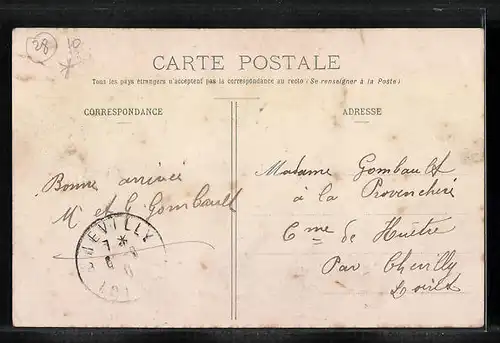 28
10
CARTE POSTALE
Tous les pays étrangers n'acceptent pas la correspondance au recto (Se renseigner à la Poste)
CORRESPONDANCE
ADRESSE
Bonne arrivée
M et Gombault
Madame Gombault
à la Provenchère
Cme de Huêtre
Par Chevilly
Loiret
CHEVILLY